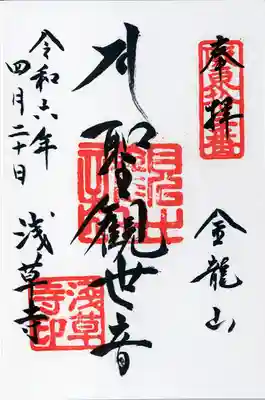 奉拝
金龍山
聖観世音
浅草寺
令和六年
四月二十日
浅草
寺印